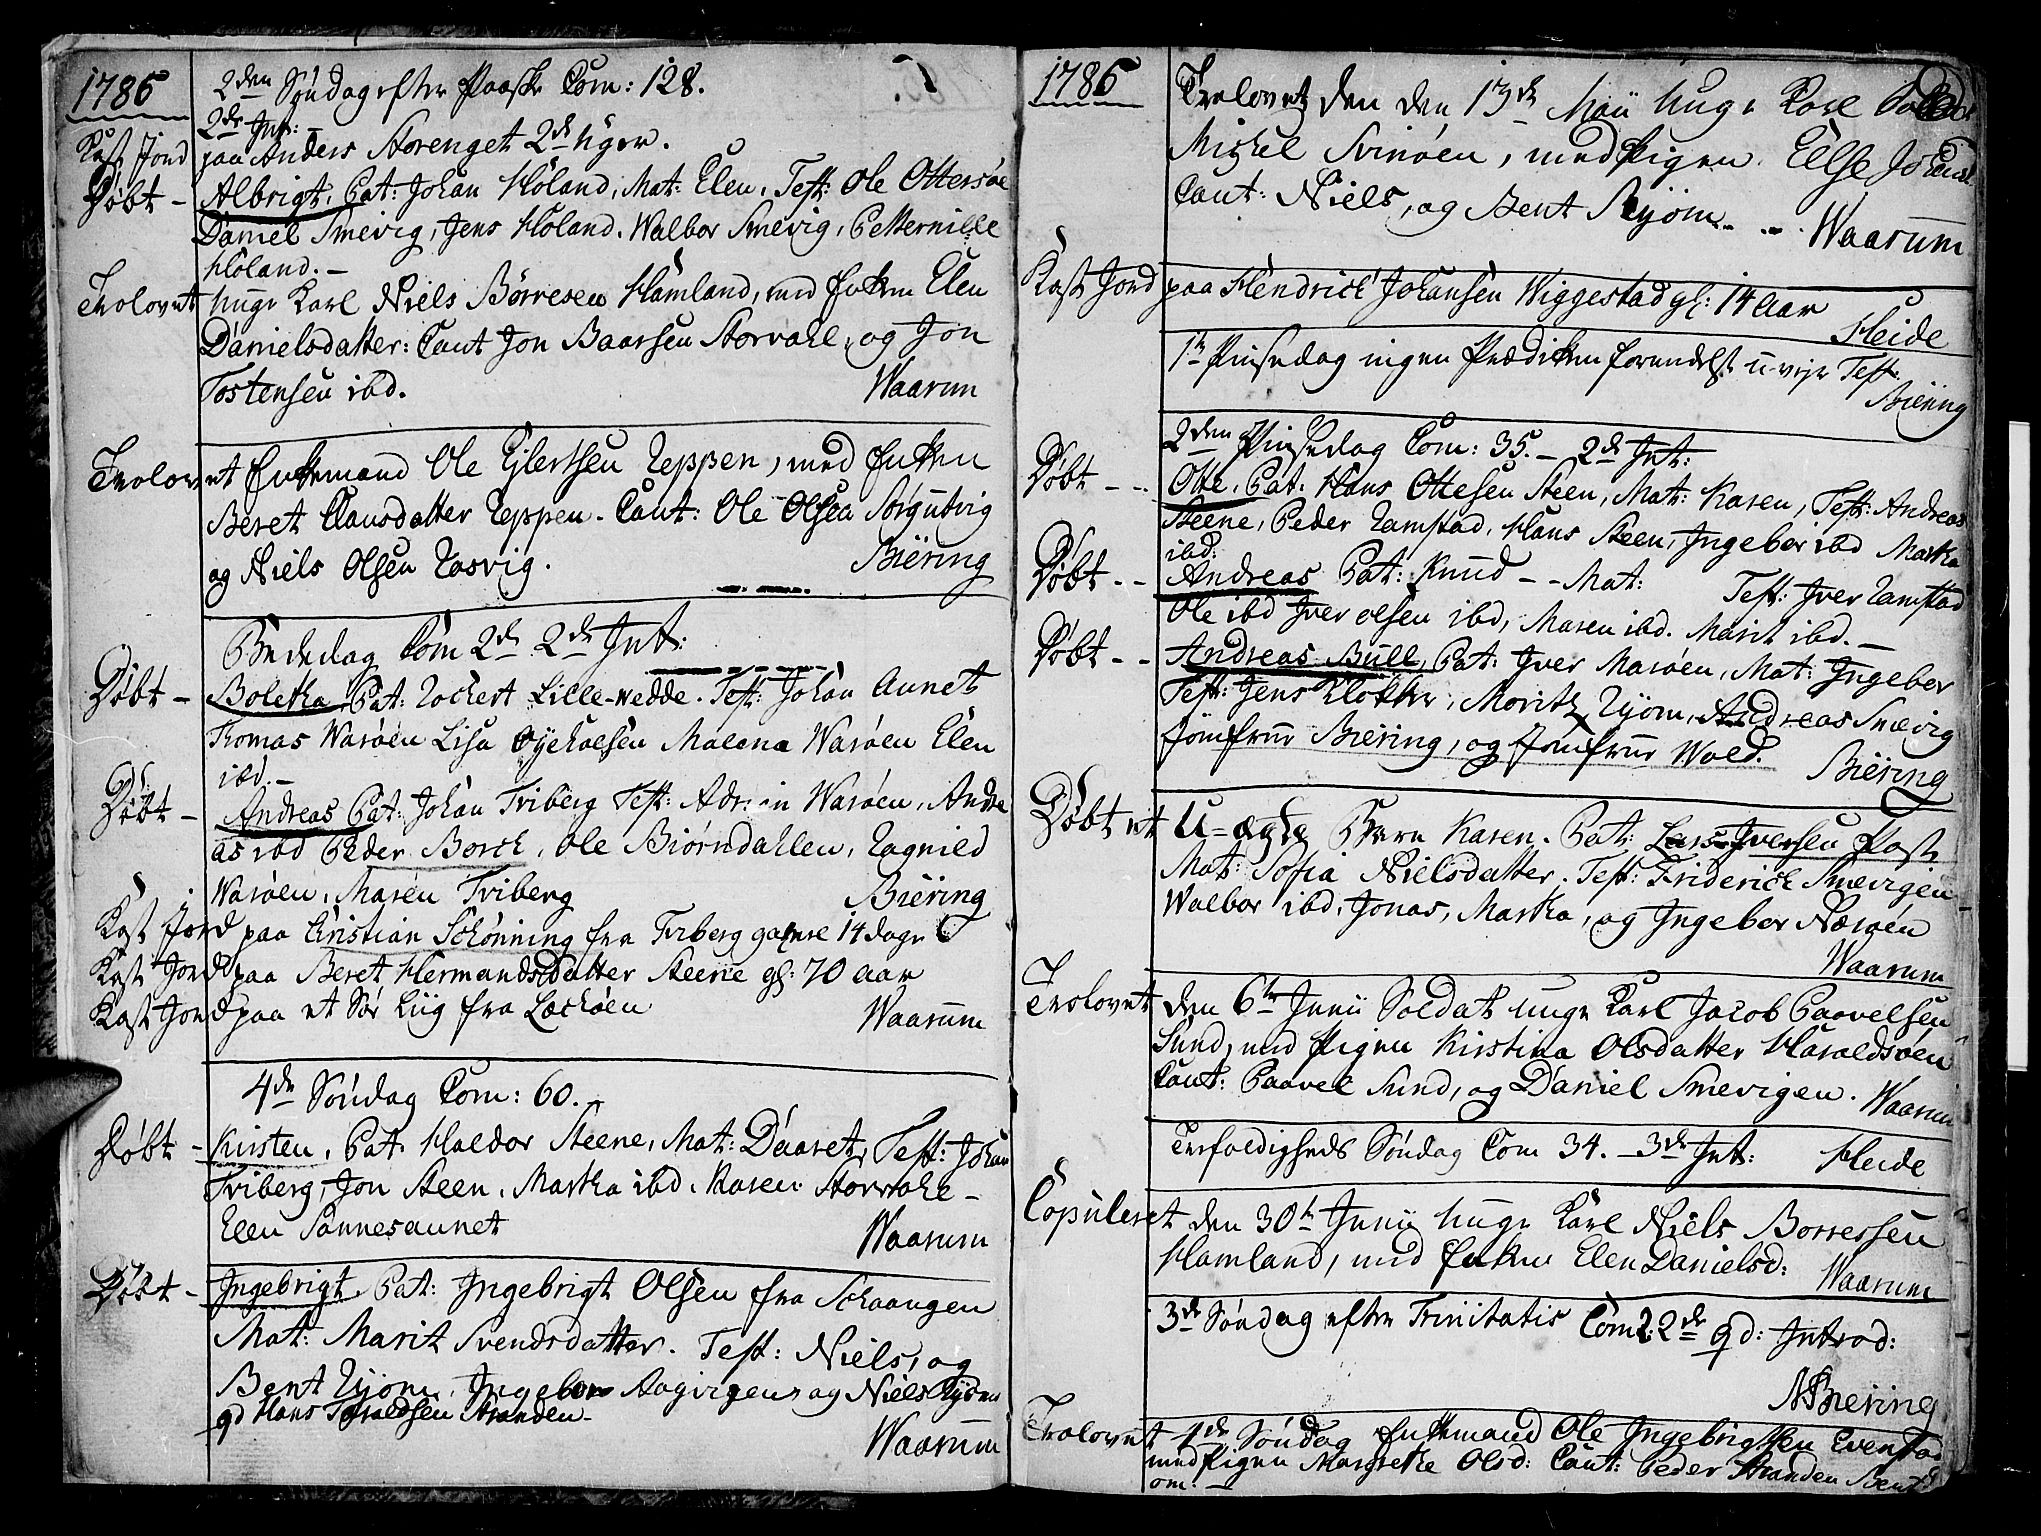 1786
2den Söndag efter Paaske Com: 128.
2de Int: –
Kast Jord paa Anders Storenget 2de uger.
Döbt – Albrigt, Pat: Johan Höland, Mat: Elen, Test: Ole Ottersöe
Daniel Smevig, Jens Höland. Walbor Smevig, Petternille
Höland. –
Trolovet unge Karl Niels Börresen Hamland, med Enken Elen
Danielsdatter: Caut Jon Baarsen Storvahl, og Jon
Tostensen ibd. Waarum
Trolovet Enkemand Ole Ejlertsen Teppen, med Enken
Beret Clausdatter Teppen. Caut: Ole Olsen
og Niels Olsen Rosvig. Biering
Bededag Com 2de 2de Int:
Döbt – Boletha, Pat: Lockert Lille-wedde. Test: Johan Aunet
Thomas Waröen Lisa Malena Waröen Elen
ibd. –
Döbt – Andreas Pat: Johan Friberg Test: Waröen, Andre
as ibd Peder Borch, Ole Biörndahlen, Ragnild
Waröen, Maren Friberg Biering
Kast Jord paa Cristian Schönning fra Friberg gamle 14 dage
Kast Jord paa Beret Hermandsdatter Steene gl: 70 aar
Kast Jord paa et Liig fra Waarum
4de Söndag Com: 60. –
Döbt – Kirsten, Pat: Haldor Steene, Mat: Daaret, Test: Johan
Friberg, Jon Steen, Martha ibd. Karen Storvahl –
Elen Sannesaunet Waarum
Döbt – Ingebrigt, Pat: Ingebrigt Olsen fra Schaangen
Mat: Marit Svendsdatter. Test: Niels, og
Bent Ryöm, Ingebor og Niels Ryöm
qd Hans Haraldsen Stranden – Waarum
1786
Trolovet den den 13de Maii unge Karl Soldat
Michel Svinöen, med Pigen Else
Caut: Niels, og Bent Ryöm. – Waarum
Kast Jord paa Hendrich Johansen Wiggestad gl: 14 Aar
Heide
1te Pinsedag ingen Prædiken formedelst u-vejr Test:
Biering
2den Pinsedag Com: 35. – 2de Int:
Döbt – – Otte, Pat: Hans Ottesen Steen, Mat: Karen, Test: Andreas
Steene, Peder Ramstad, Hans Steen, Ingebor ibd Martha
ibd:
Döbt – – Andreas Pat: Knud – – Mat: Test: Iver Ramstad
Ole ibd Iver olsen ibd, Maren ibd. Marit ibd. –
Döbt – – Andreas Bull, Pat: Iver Maröen, Mat: Ingebor
Test: Jens Klokker, Moritz Ryöm, Andreas Smevig
Jomfrue Biering, og Jomfrue Wold. Biering
Döbt et U=ægte Barn Karen. Pat: Lars Iversen Post
Mat: Sofia Nielsdatter. Test: Friderich Smevigen –
Walbor ibd, Jonas, Martha, og Ingebor Næröen
Waarum
Trolovet den 6te Junii Soldat unge Karl Jacob Paavelsen
Sund, med Pigen Kirstina Olsdatter Haraldsöen
Caut: Paavel Sund, og Daniel Smevigen. Waarum
Trefoldigheds Söndag Com 34. – 3de Int: Heide
Copuleret den 30te Junii unge Karl Niels Borresen
Hamland, med Enken Elen Danielsd: Waarum
3de Söndag efter Trinitatis Com: 2de qd: Introd:
Biering
Trolovet 4de Söndag Enkemand Ole Ingebrigtsen Evenstad
med Pigen Margrethe Olsd: Caut: Peder Stranden Bent Ry
om. –